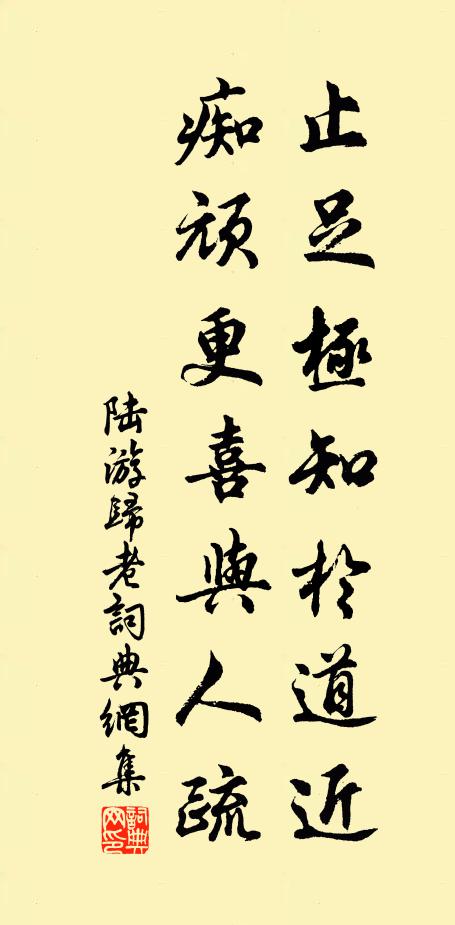 止足極知於道近
痴頑更喜與人疏
陆游歸老詞典網集
詞典网印